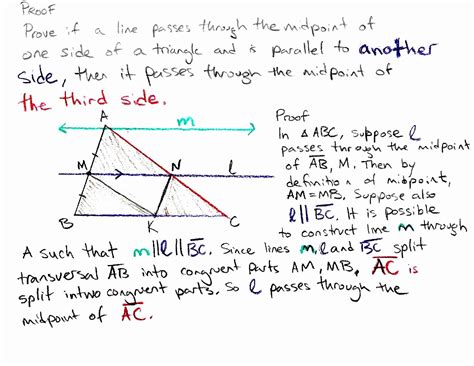 PROOF
Prove if a line passes through the midpoint of
one side of a triangle and is parallel to another
side, then it passes through the midpoint of
the third side.
A
m
M
N
l
B
K
C
Proof
In △ABC, suppose l
passes through the midpoint
of AB, M. Then by
definition of midpoint,
AM=MB. Suppose also
l || BC. It is possible
to construct line m through
A such that m||l||BC. Since lines m, l and BC split
transversal AB into congruent parts AM, MB, AC is
split intwo congruent parts. So l passes through the
midpoint of AC.